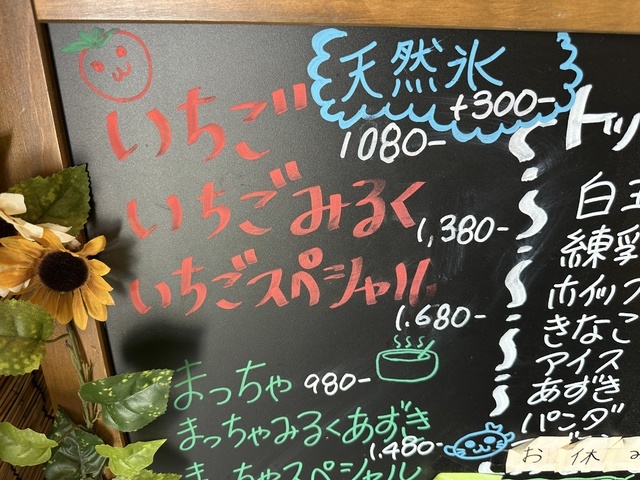 天然氷
+300-
いちご
1080-
いちごみるく
1,380-
いちごスペシャル
1.680-
まっちゃ 980-
まっちゃみるくあずき
1.480-
まっちゃスペシャル
トッ
白玉
練乳
ホイップ
きなこ
アイス
あずき
パンダ
お休み